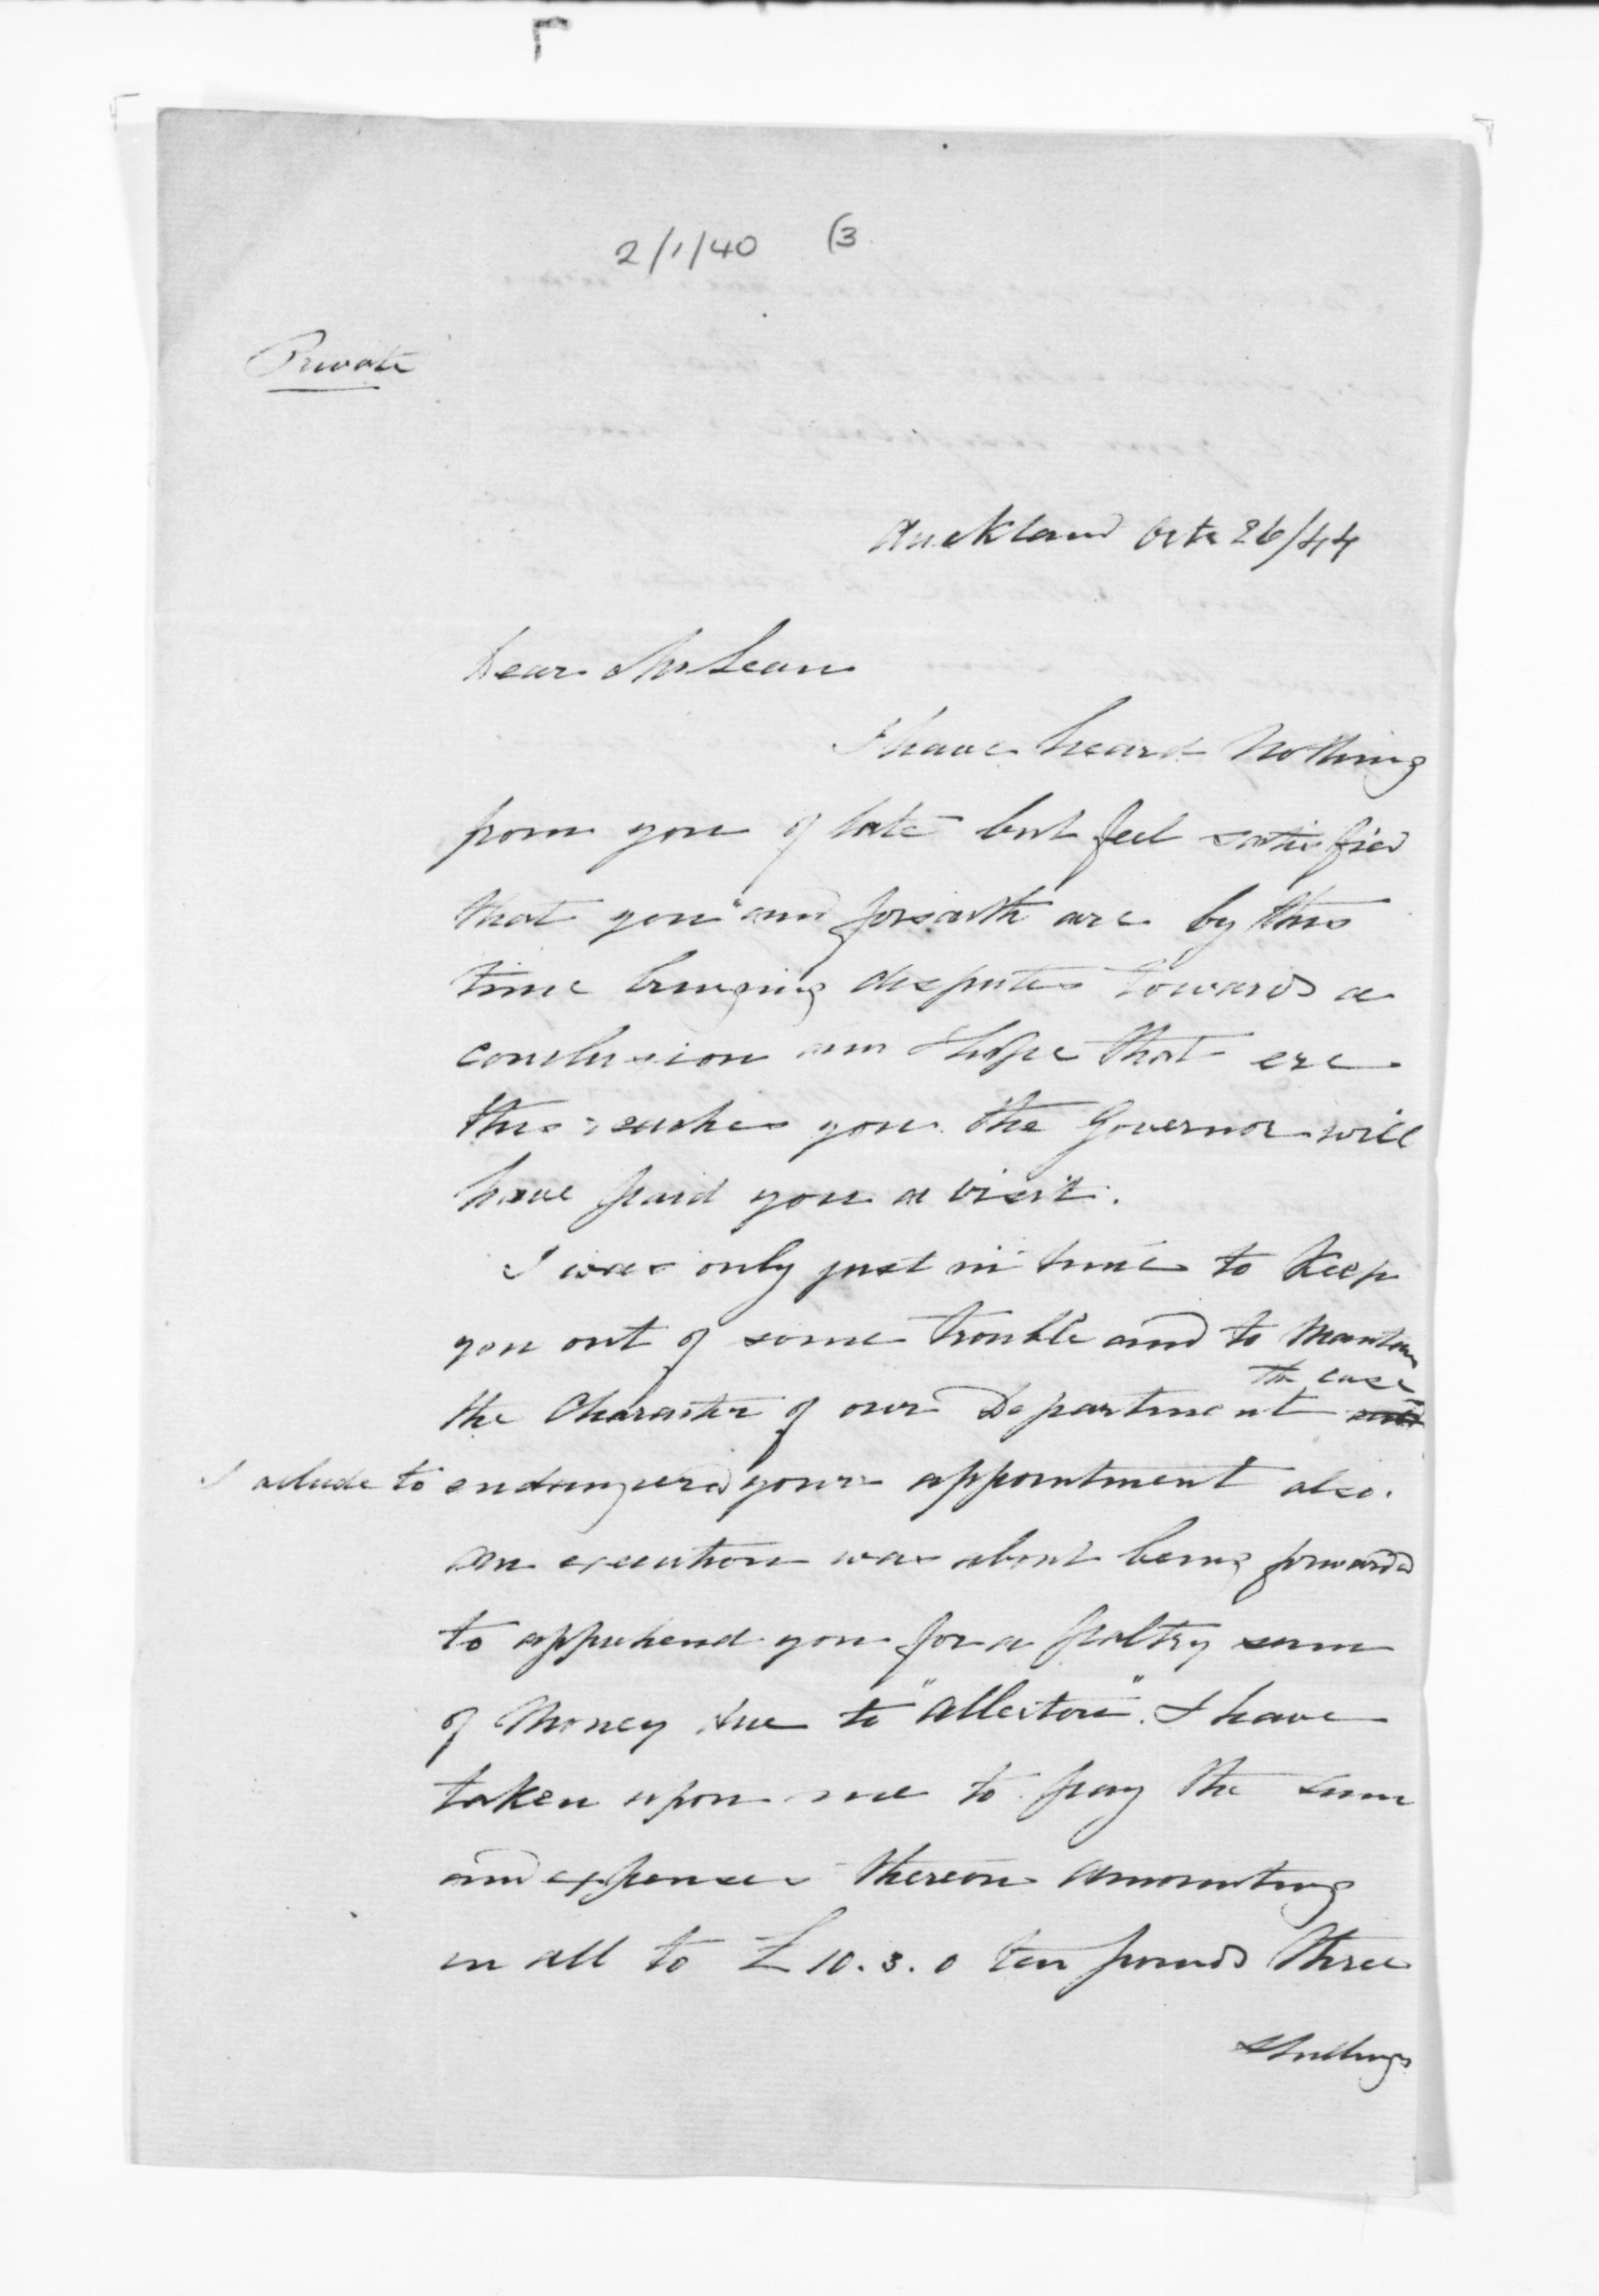 2/1/40 (3
Private
Auckland Octr 26/44
Dear McLean
I have heard nothing
from you of late but feel satisfied
that you and forsaith are by this
time bringing disputes towards a
conclusion and I hope that ere
this reaches you the Governor will
have paid you a visit.
I was only just in time to Keep
you out of some trouble and to Maintain
the case
the Character of our Department
I allude to endangered your appointment also.
An execution was about being forwarded
to apprehend you for a paltry sum
of Money due to "Alleston". I have
taken upon me to pay the sum
and expenses thereon amounting
in all to £10.3.0 ten pounds three
Shillings